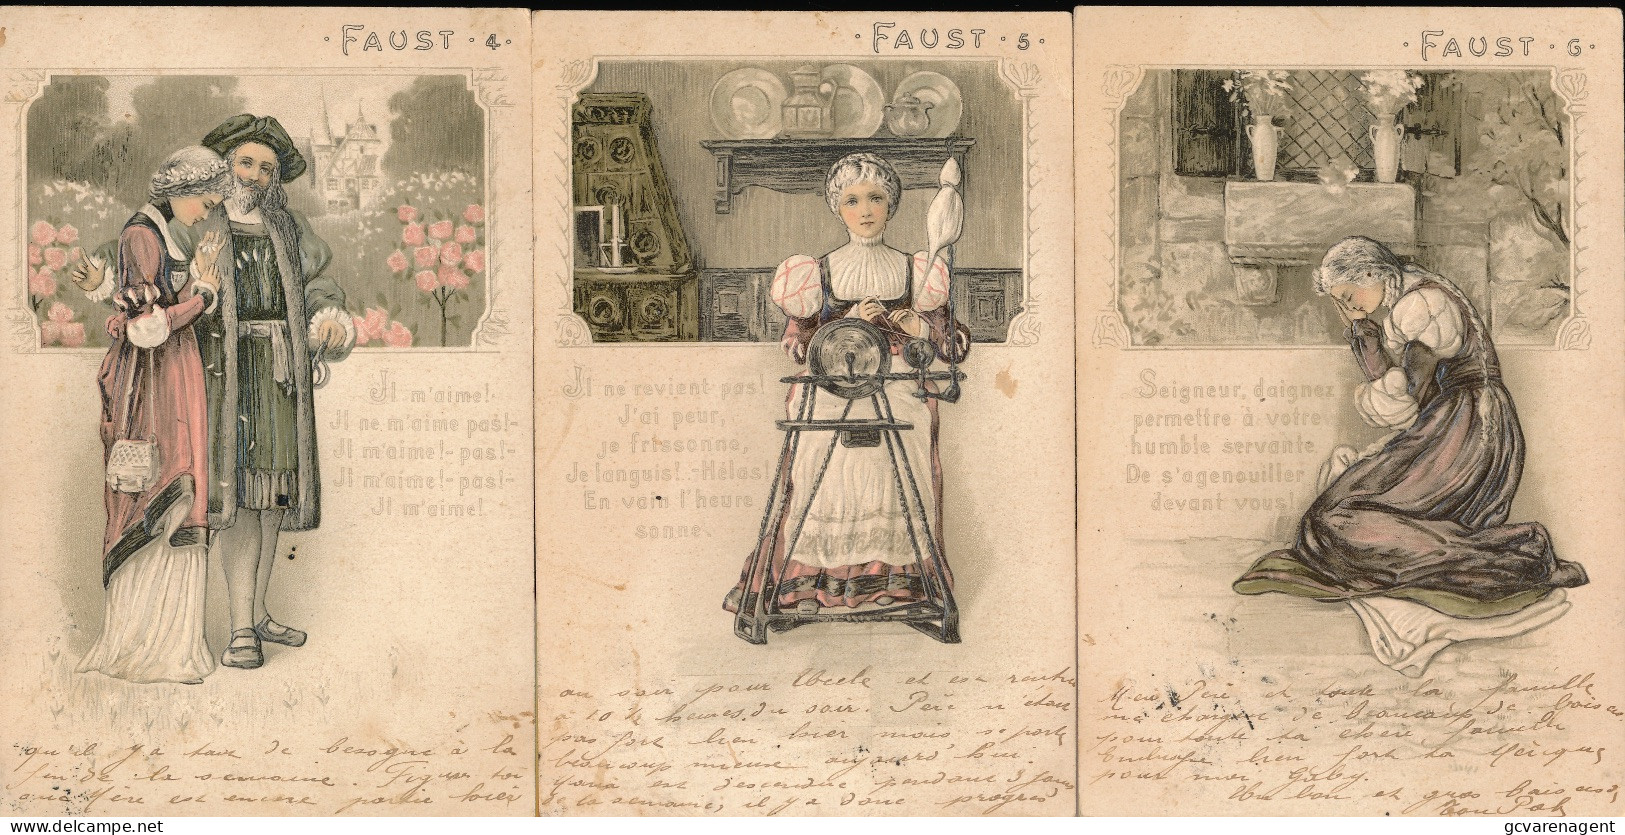 · FAUST · 4 ·
Il m'aime!
Il ne m'aime pas!-
Il m'aime!- pas!-
Il m'aime!- pas!-
Il m'aime!
qu'il y a tant de besogne à la
fin de la semaine. Figure toi
que Mère est encore partie hier
· FAUST · 5 ·
Il ne revient pas!
J'ai peur,
je frissonne,
Je languis!.-Hélas!
En vain l'heure
sonne.
au soir pour et est rentrée
à 10 ½ heures du soir. Père n'était
pas fort bien hier mais se porte
beaucoup mieux aujourd'hui.
est descendue pendant 3 jours
de la semaine, il y a donc progrès
· FAUST · 6 ·
Seigneur, daignez
permettre à votre
humble servante,
De s'agenouiller
devant vous!
Mon Père et toute la famille
me chargent de beaucoup de baisers
pour toute ta chère famille
bien fort ta
pour moi, Gaby.
Un bon et gros baiser
ton
© gcvarenagent